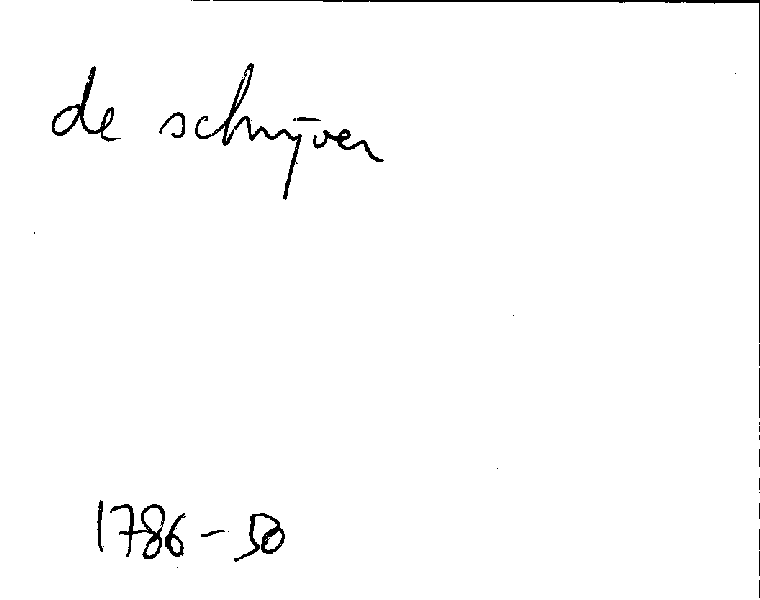 de schrijver
1786-50